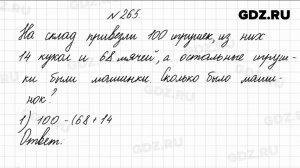 GDZ.RU
№ 265.
На склад привезли 100 игрушек, из них
14 кукол и 68 мячей, а остальные игруш-
ки были машинки. Сколько было маши-
нок?
1) 100 - (68 + 14
Ответ:
GDZ.RU